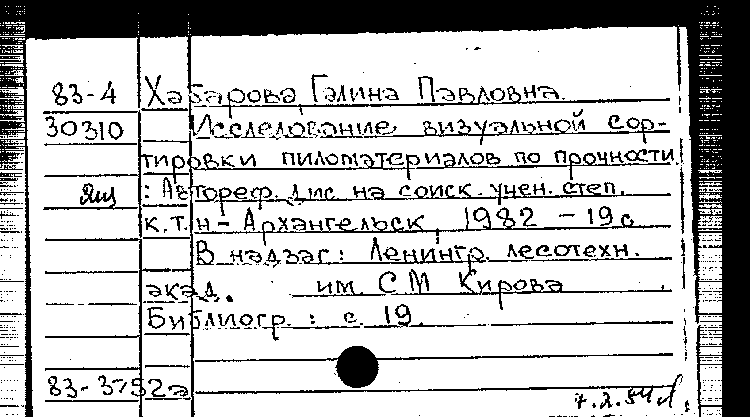 83-4 Хабарова, Галина Павловна.
30310 Исследование визуальной сор-
тировки пиломатериалов по прочности
: Автореф. дис на соиск. учен. степ.
к.т.н - Архангельск, 1982 - 19 с
В надзаг: Ленингр. лесотехн.
акад. им. С М Кирова
Библиогр. : с. 19.
83-3752а